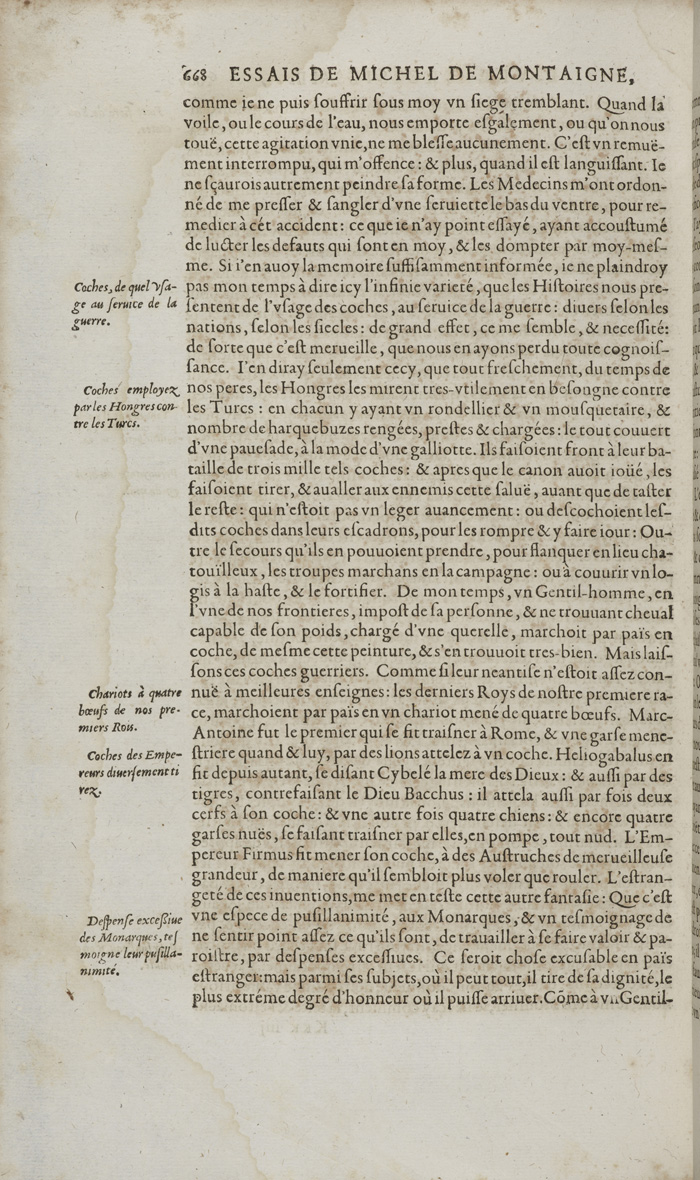 668 ESSAIS DE MICHEL DE MONTAIGNE,
comme ie ne puis ſouffrir ſous moy vn ſiege tremblant. Quand la
voile, ou le cours de l'eau, nous emporte eſgalement, ou qu'on nous
touë, cette agitation vnie, ne me bleſſe aucunement. C'eſt vn remuë-
ment interrompu, qui m'offence: & plus, quand il eſt languiſſant. Ie
ne ſçaurois autrement peindre ſa forme. Les Medecins m'ont ordon-
né de me preſſer & ſangler d'vne ſeruiette le bas du ventre, pour re-
medier à cét accident: ce que ie n'ay point eſſayé, ayant accouſtumé
de lucter les defauts qui ſont en moy, & les dompter par moy-meſ-
me. Si i'en auoy la memoire ſuffiſamment informée, ie ne plaindroy
Coches, de quel vſa-
ge au ſeruice de la
guerre.
pas mon temps à dire icy l'infinie varieté, que les Hiſtoires nous pre-
ſentent de l'vſage des coches, au ſeruice de la guerre: diuers ſelon les
nations, ſelon les ſiecles: de grand effet, ce me ſemble, & neceſſité:
de ſorte que c'eſt merueille, que nous en ayons perdu toute cognoiſ-
ſance. I'en diray ſeulement cecy, que tout freſchement, du temps de
Coches employez
par les Hongres con-
tre les Turcs.
nos peres, les Hongres les mirent tres-vtilement en beſongne contre
les Turcs: en chacun y ayant vn rondellier & vn mouſquetaire, &
nombre de harquebuzes rengées, preſtes & chargées: le tout couuert
d'vne paueſade, à la mode d'vne galliotte. Ils faiſoient front à leur ba-
taille de trois mille tels coches: & apres que le canon auoit ioüé, les
faiſoient tirer, & aualler aux ennemis cette ſaluë, auant que de taſter
le reſte: qui n'eſtoit pas vn leger auancement: ou deſcochoient leſ-
dits coches dans leurs eſcadrons, pour les rompre & y faire iour: Ou-
tre le ſecours qu'ils en pouuoient prendre, pour flanquer en lieu cha-
touïlleux, les troupes marchans en la campagne: ou à couurir vn lo-
gis à la haſte, & le fortifier. De mon temps, vn Gentil-homme, en
l'vne de nos frontieres, impoſt de ſa perſonne, & ne trouuant cheual
capable de ſon poids, chargé d'vne querelle, marchoit par païs en
coche, de meſme cette peinture, & s'en trouuoit tres-bien. Mais laiſ-
ſons ces coches guerriers. Comme ſi leur neantiſe n'eſtoit aſſez con-
Chariots à quatre
bœufs de nos pre-
miers Rois.
nuë à meilleures enſeignes: les derniers Roys de noſtre premiere ra-
ce, marchoient par païs en vn chariot mené de quatre bœufs. Marc-
Antoine fut le premier qui ſe fit traiſner à Rome, & vne garſe mene-
Coches des Empe-
reurs diuerſement ti
rez.
ſtriere quand & luy, par des lions attelez à vn coche. Heliogabalus en
fit depuis autant, ſe diſant Cybelé la mere des Dieux: & auſſi par des
tigres, contrefaiſant le Dieu Bacchus: il attela auſſi par fois deux
cerfs à ſon coche: & vne autre fois quatre chiens: & encore quatre
garſes nuës, ſe faiſant traiſner par elles, en pompe, tout nud. L'Em-
pereur Firmus fit mener ſon coche, à des Auſtruches de merueilleuſe
grandeur, de maniere qu'il ſembloit plus voler que rouler. L'eſtran-
geté de ces inuentions, me met en teſte cette autre fantaſie: Que c'eſt
Deſpenſe exceßiue
des Monarques, teſ
moigne leur puſilla-
nimité.
vne eſpece de puſillanimité, aux Monarques, & vn teſmoignage de
ne ſentir point aſſez ce qu'ils ſont, de trauailler à ſe faire valoir & pa-
roiſtre, par deſpenſes exceſſiues. Ce ſeroit choſe excuſable en païs
eſtranger: mais parmi ſes ſubjets, où il peut tout, il tire de ſa dignité, le
plus extréme degré d'honneur où il puiſſe arriuer. Cõme à vn Gentil-